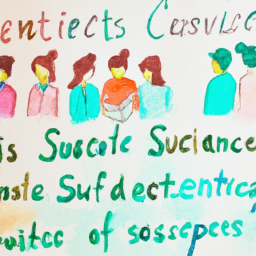 entiects Cesvlce
is Suscote Suciance
nste Sufdectentica
uitcc of sossepes"